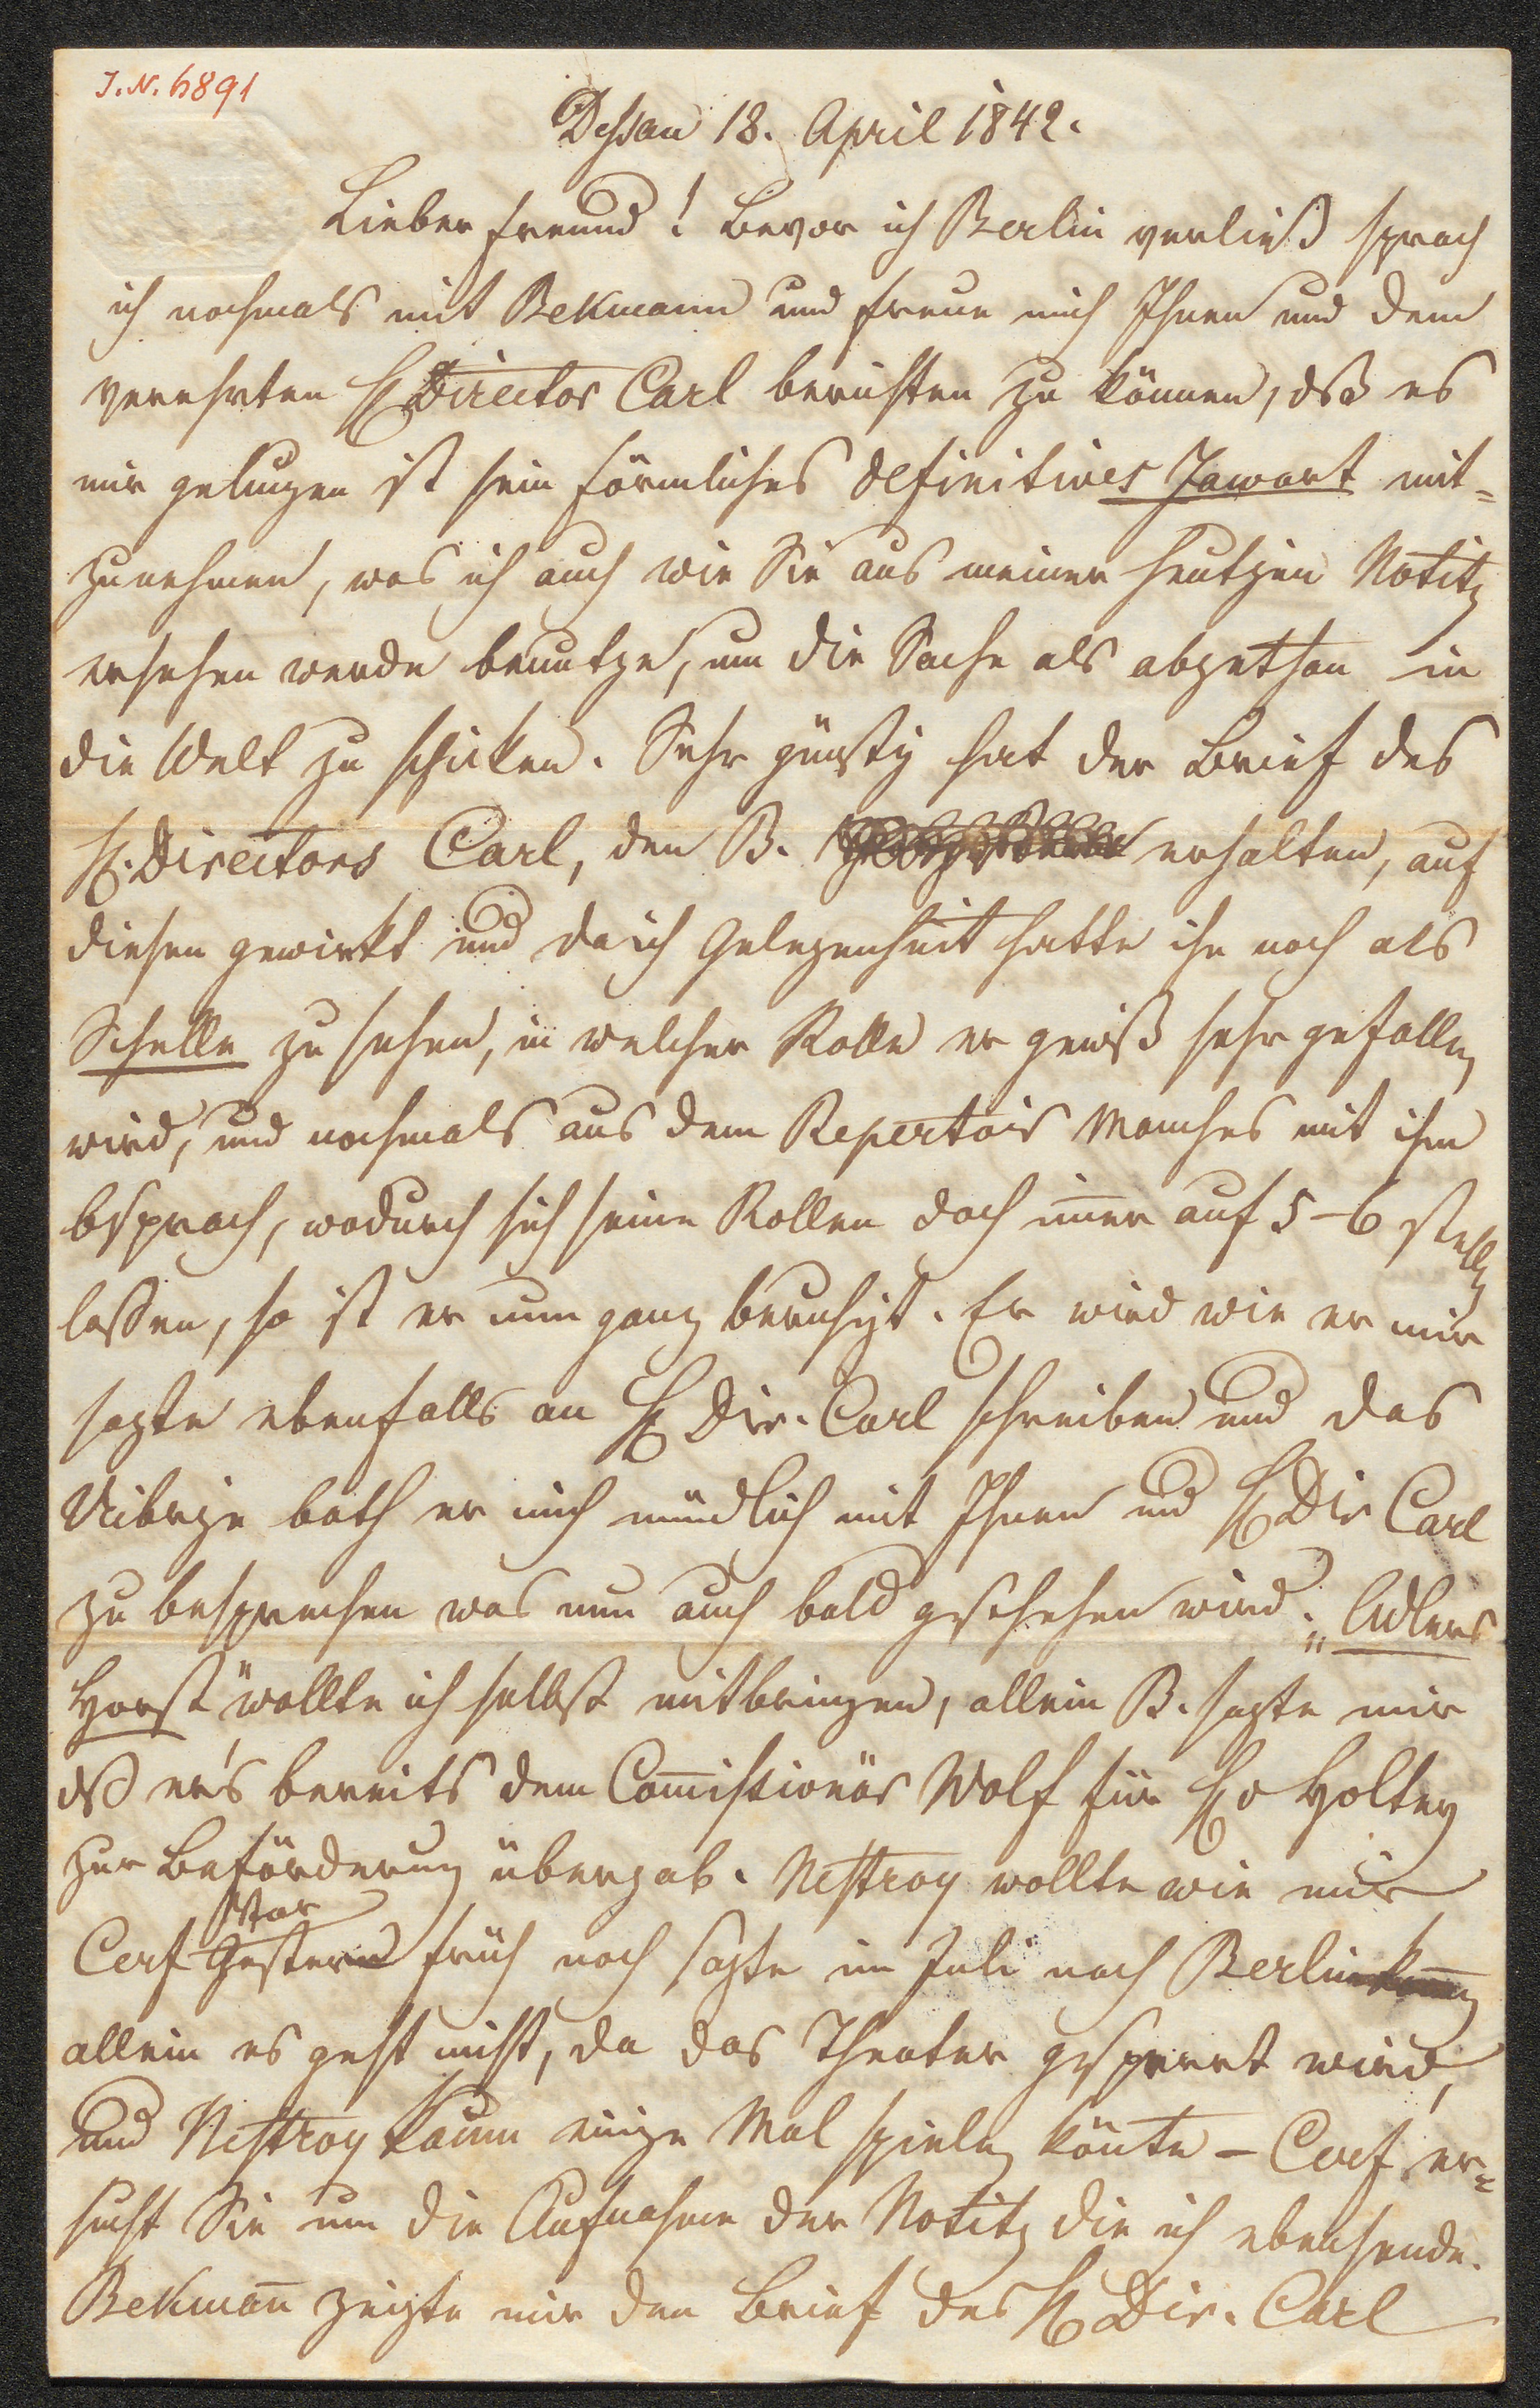 I. N. 6891
Dessau 18. April 1842.
Lieber Freund! Bevor ich Berlin verließ sprach
ich nochmals mit Bekmann und freue mich Ihnen und dem
verehrten H Director Carl berichten zu können, dß es
mir gelungen ist sein förmliches definitives Jawort mit=
zunehmen, was ich auch wie Sie aus meiner heutgen Notitz
ersehen werde benutze, um die Sache als abgethan in
die Welt zu schicken. Sehr günstig hat der Brief des
H. Directors Carl, den B. erhalten, auf
diesen gewirkt und da ich Gelegenheit hatte ihn noch als
Schelle zu sehen, in welcher Rolle er gewiß sehr gefallen
wird, und nochmals aus dem Repertoir Manches mit ihm
besprach, wodurch sich seine Rollen doch imer auf 5–6 stellen
lassen, so ist er nun ganz beruhigt. Er wird wie er mir
sagte ebenfalls an H Dir. Carl schreiben und das
Uibrige bath er mich mündlich mit Ihnen und H Dir Carl
zu besprechen was nun auch bald geschehen wird. „Adlers
Horst" wollte ich selbst mitbringen, allein B. sagte mir
dß er's bereits dem Comissionär Wolf für H v Holtey
zur Beförderung übergab. Nestroy wollte wie mir
Cerf Vorgestern früh noch sagte im Juli nach Berlin
allein es geht nicht, da das Theater gesperrt wird,
und Nestroy kaum einige Mal spielen könte – Cerf er=
sucht Sie um die Aufnahme der Notitz die ich ebensende.
Bekman zeigte mir den Brief des H Dir. Carl